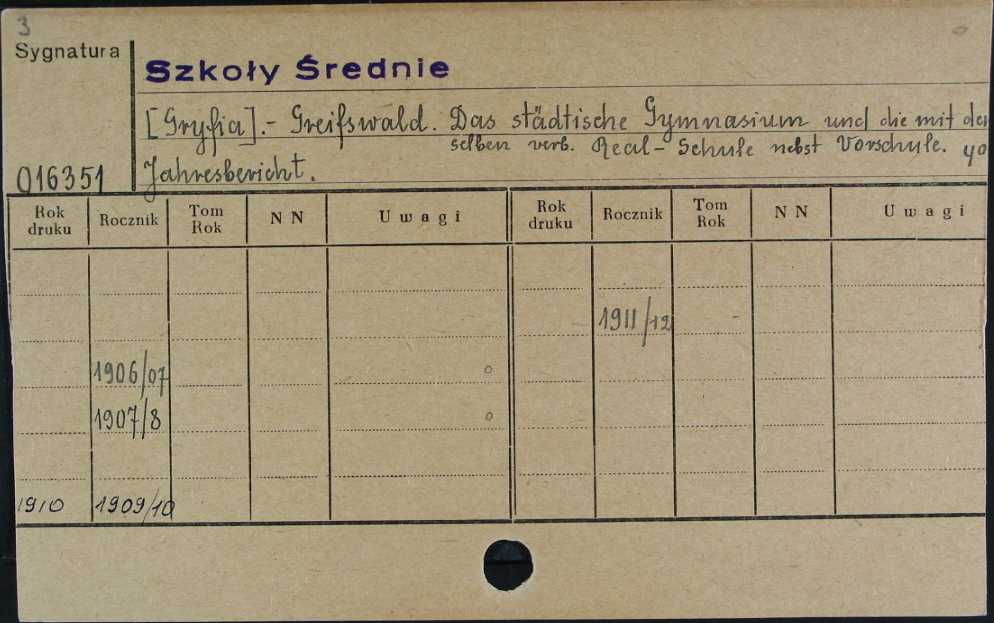 3
Sygnatura
Szkoły Średnie
[Gryfia].- Greifswald. Das städtische Gymnasium und die mit der
selben verb. Real-Schule nebst Vorschule.
016351 Jahresbericht.
Rok druku Rocznik Tom Rok N N Uwagi Rok druku Rocznik Tom Rok N N Uwagi
1911/12
1906/07
1907/8
1910 1909/10